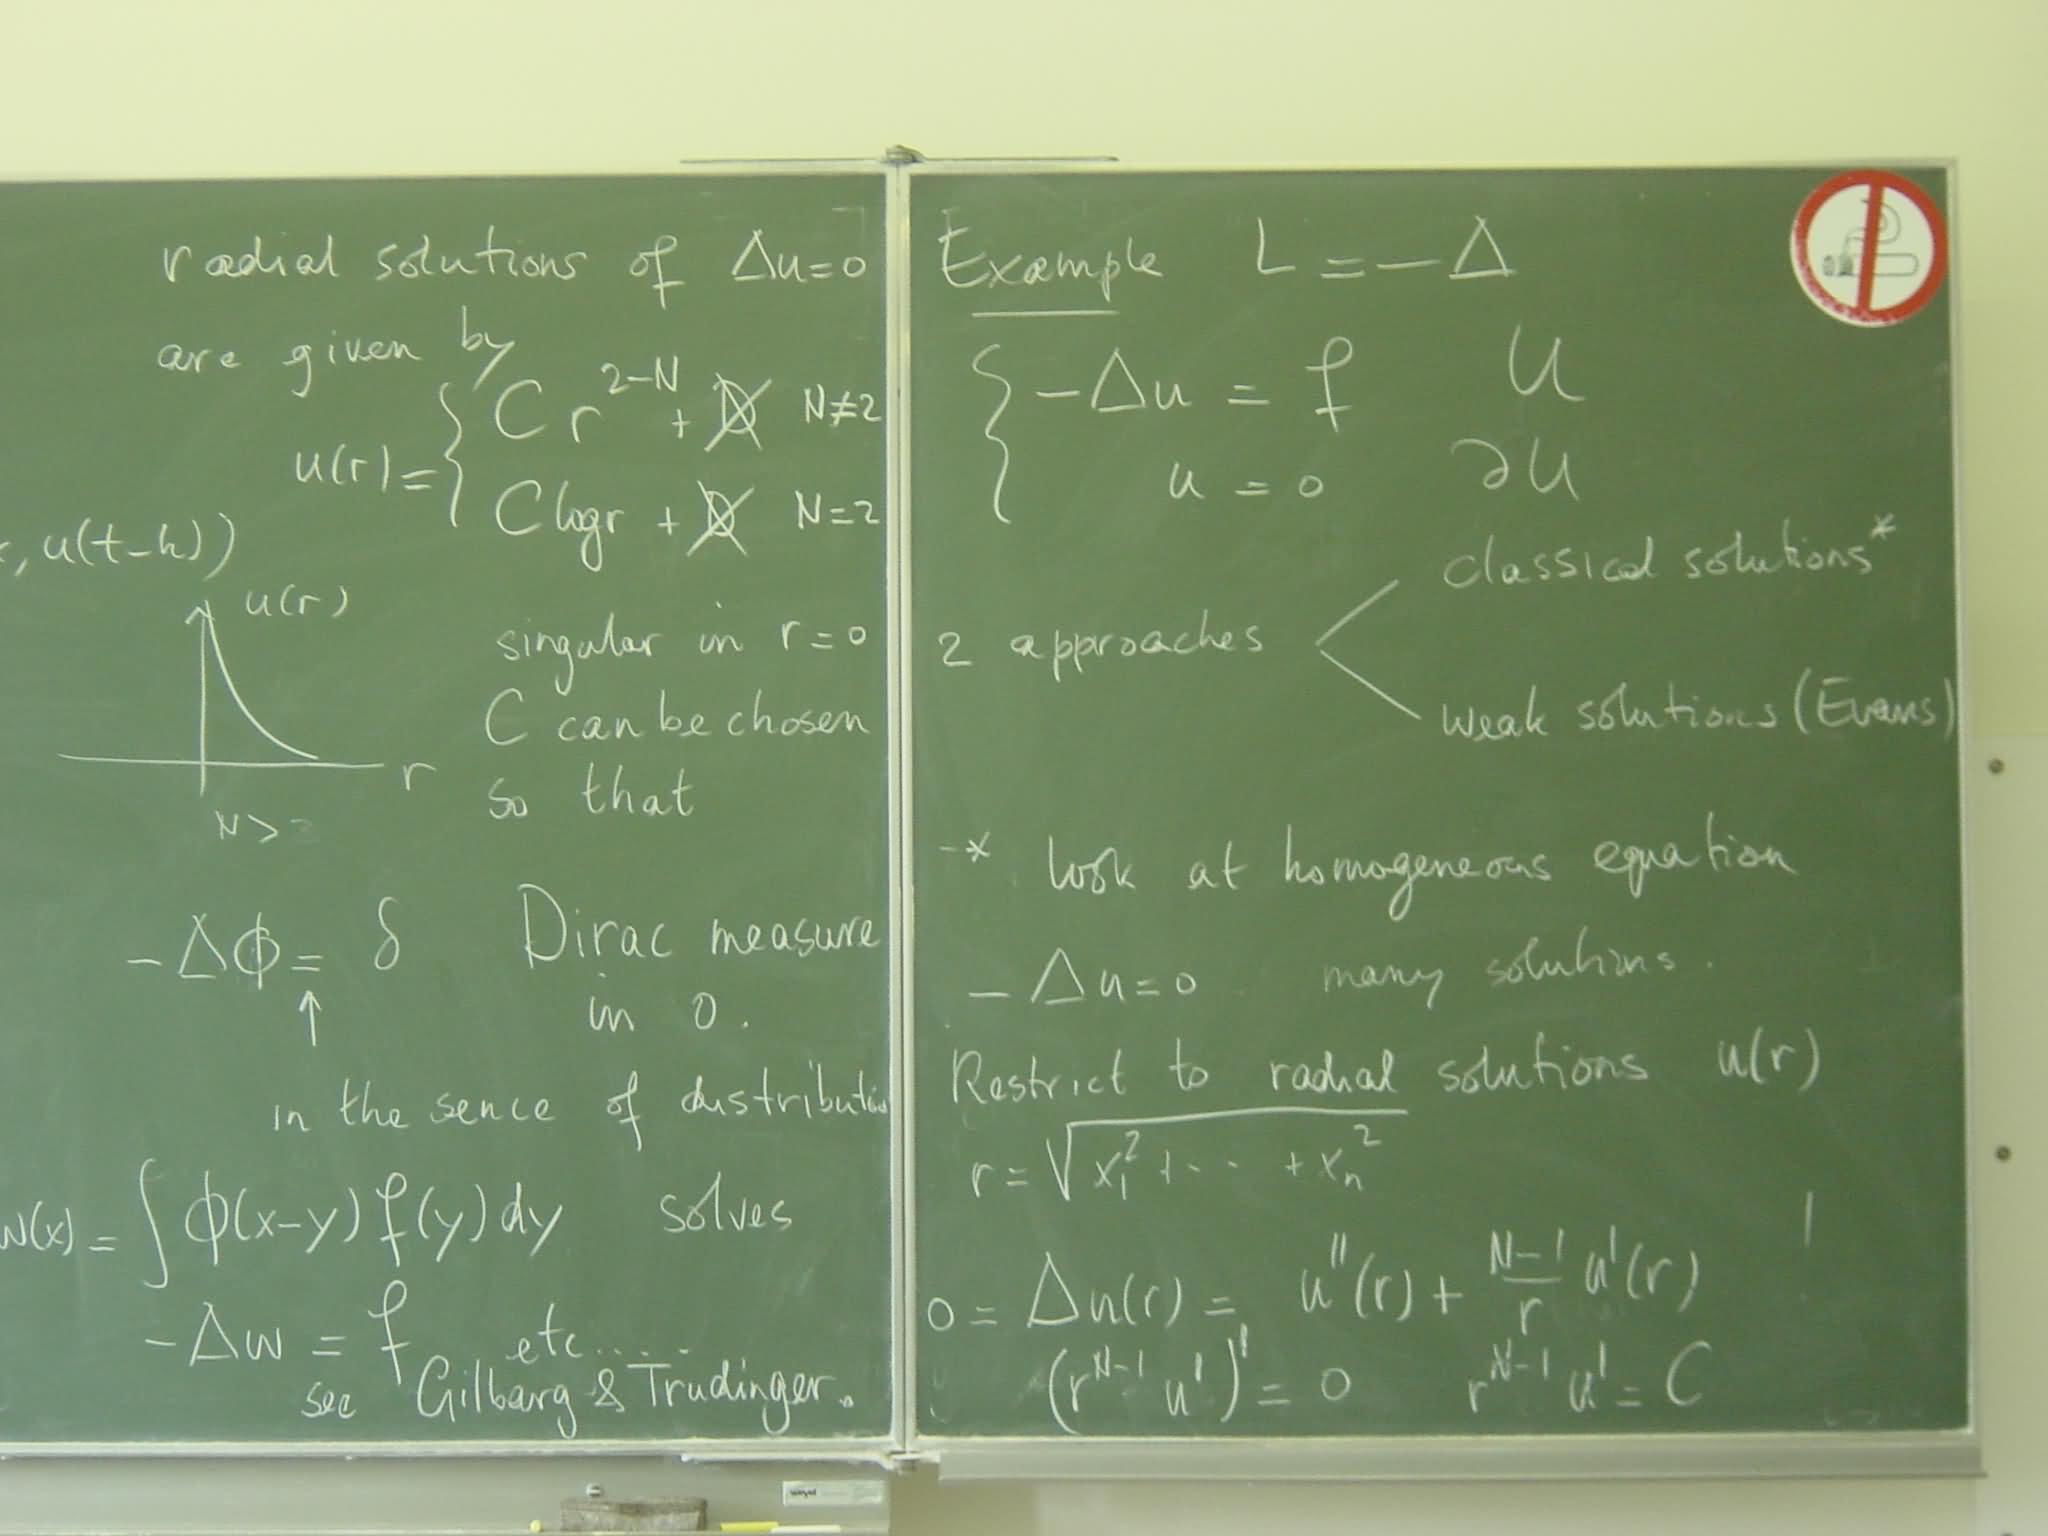 radial solutions of Δu=0
are given by
u(r) = { C r^{2-N} + D N≠2
C log r + D N=2
, u(t-h))
u(r)
r
N>
singular in r=0
C can be chosen
so that
-Δϕ = δ Dirac measure
in 0.
↑
in the sence of distributio
w(x) = ∫ ϕ(x-y) f(y) dy solves
-Δw = f etc.....
see Gilbarg & Trudinger.
Example L = -Δ
{ -Δu = f U
u = 0 ∂U
2 approaches
classical solutions*
weak solutions (Evans)
-* look at homogeneous equation
-Δu=0 many solutions.
Restrict to radial solutions u(r)
r = √x₁² + ··· + xₙ²
0 = Δu(r) = u''(r) + \frac{N-1}{r} u'(r)
(r^{N-1} u')' = 0 r^{N-1} u' = C